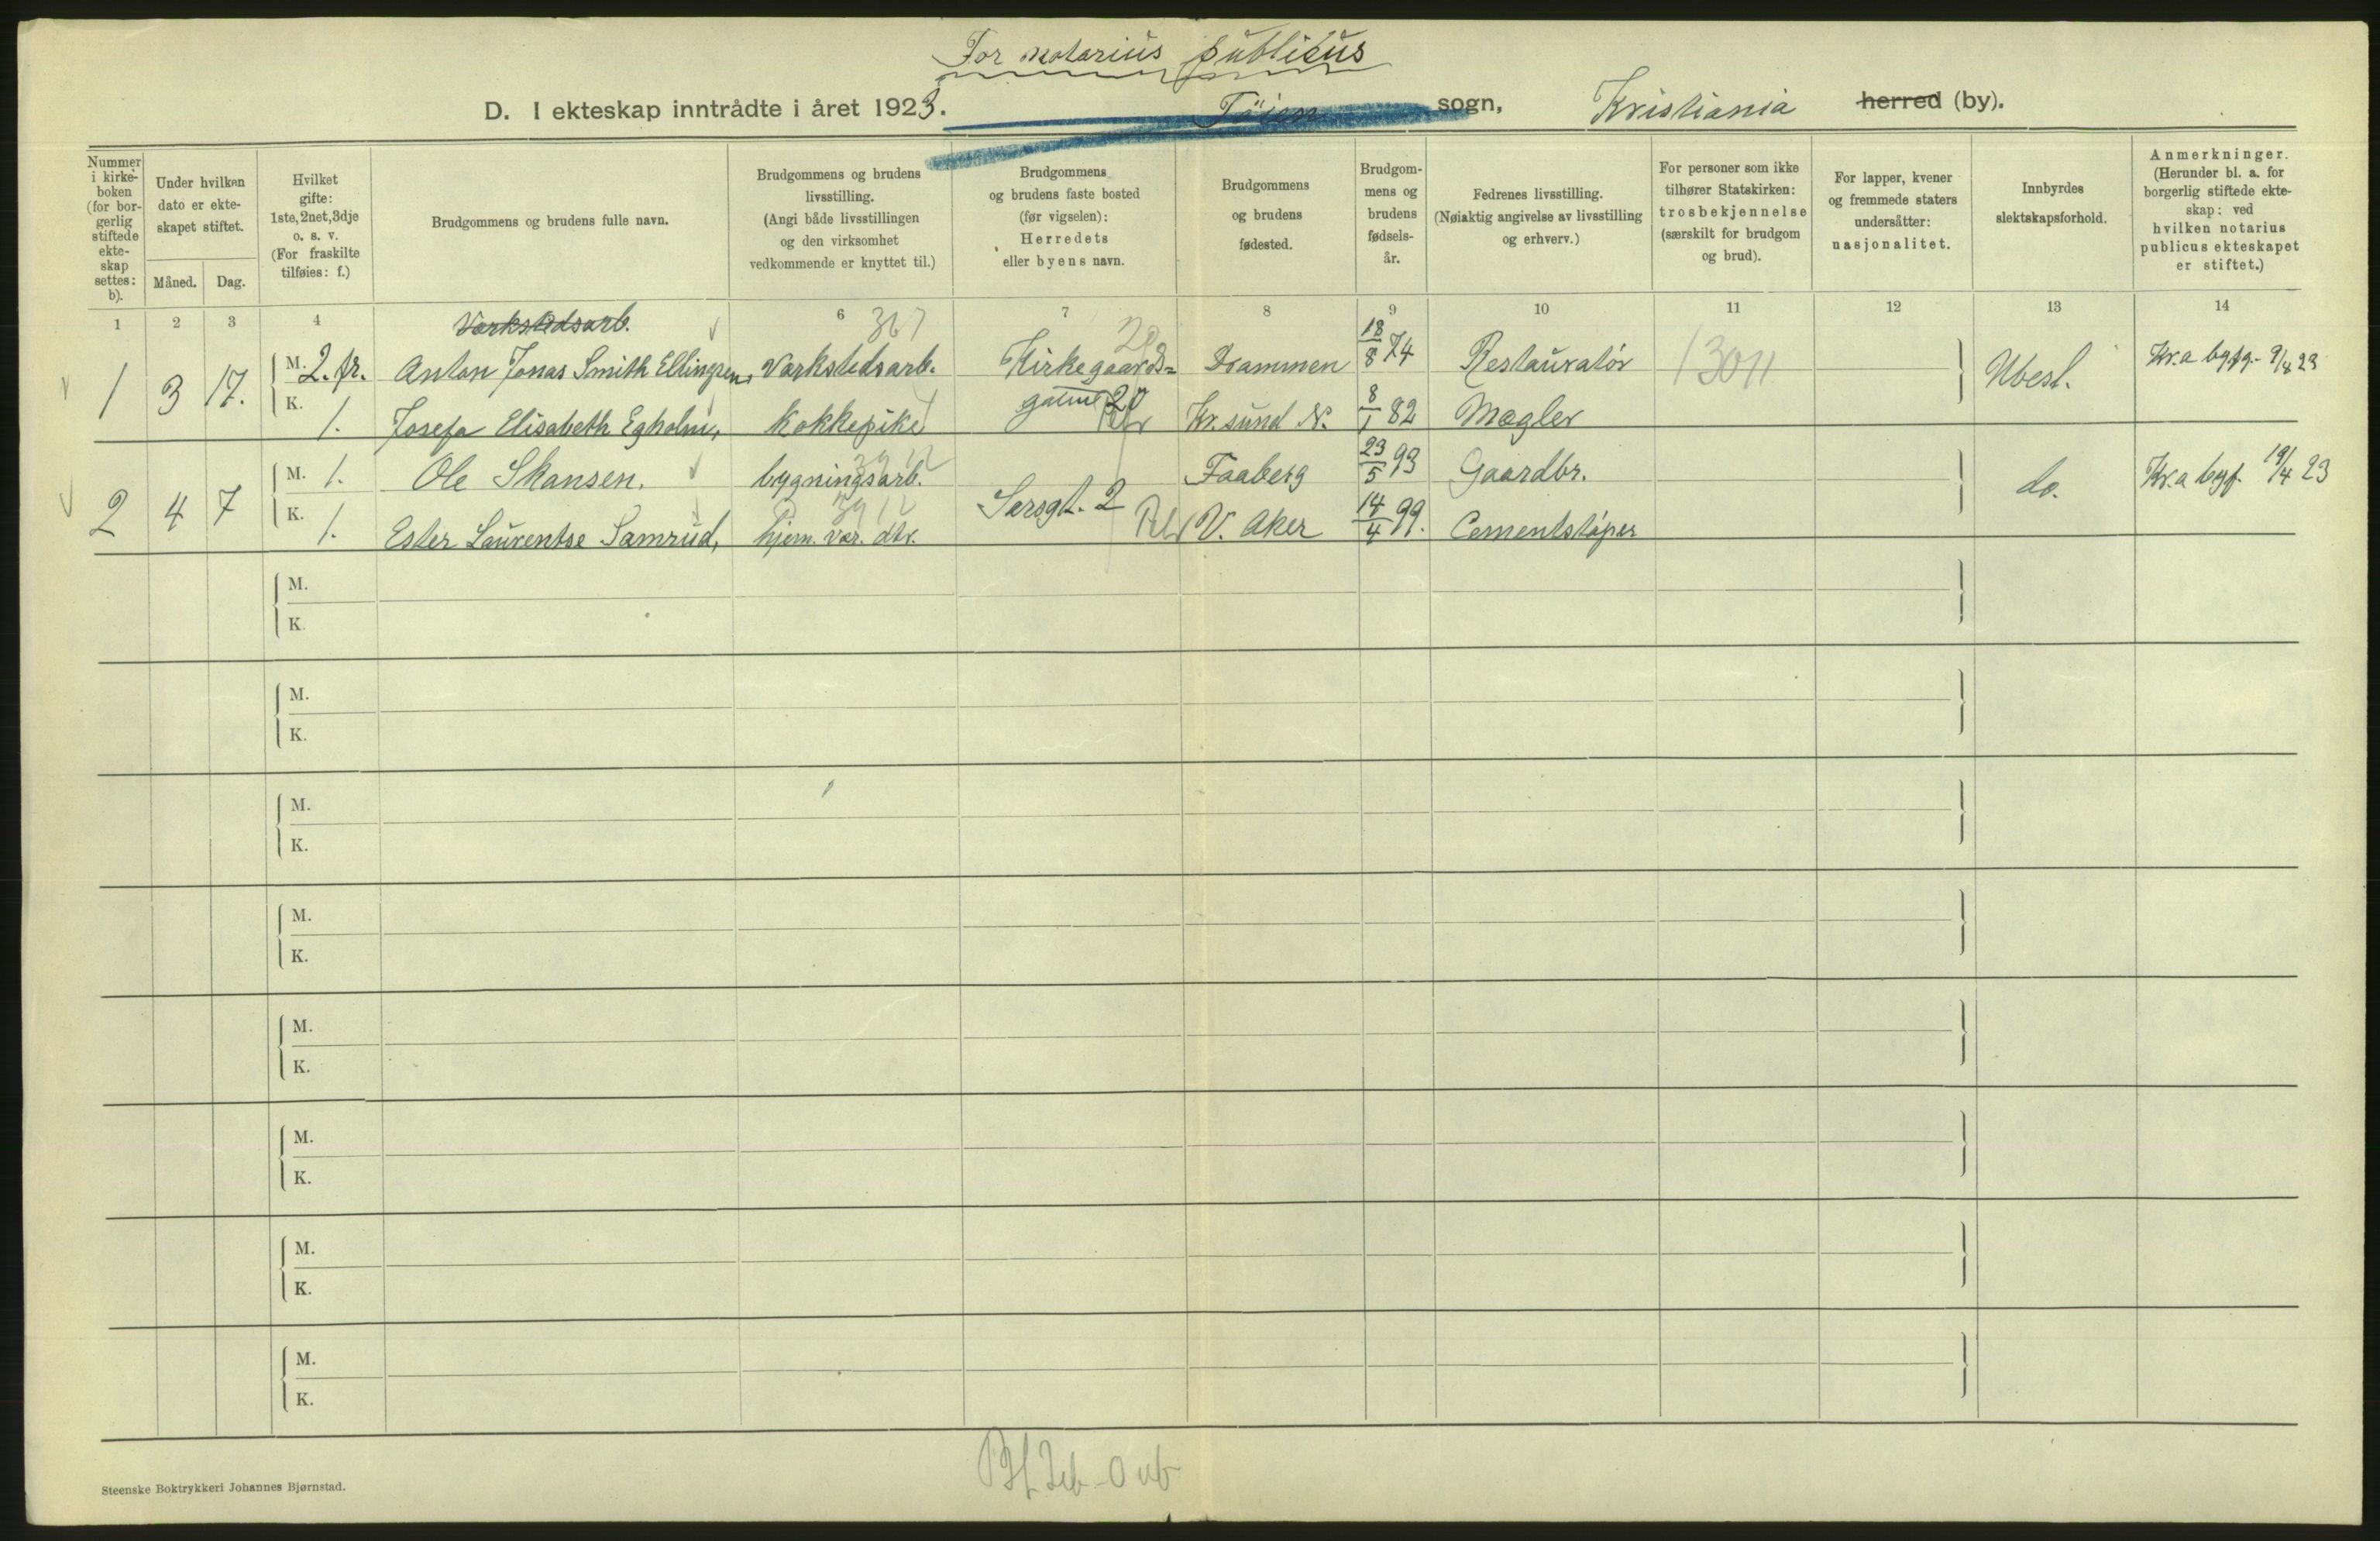 For notarius publicus
D. I ekteskap inntrådte i året 1923. Töien sogn, Kristiania herred (by).
Nummer i kirkeboken (for borgerlig stiftede ekteskap settes: b).
Under hvilken dato er ekteskapet stiftet.
Måned. Dag.
Hvilket gifte: 1ste, 2net, 3dje o. s. v. (For fraskilte tilføies: f.)
Brudgommens og brudens fulle navn.
Brudgommens og brudens livsstilling. (Angi både livsstillingen og den virksomhet vedkommende er knyttet til.)
Brudgommens og brudens faste bosted (før vigselen): Herredets eller byens navn.
Brudgommens og brudens fødested.
Brudgommens og brudens fødselsår.
Fedrenes livsstilling. (Nøiaktig angivelse av livsstilling og erhverv.)
For personer som ikke tilhører Statskirken: trosbekjennelse (særskilt for brudgom og brud).
For lapper, kvener og fremmede staters undersåtter: nasjonalitet.
Innbyrdes slektskapsforhold.
Anmerkninger. (Herunder bl. a. for borgerlig stiftede ekteskap: ved hvilken notarius publicus ekteskapet er stiftet.)
1 2 3 4 6 7 8 9 10 11 12 13 14
Verkstedsarb. 367
1 3 17. M. 2. fr. Anton Jonas Smith Ellingsen, Verkstedsarb. Kirkegaards= Drammen 18/8 74 Restauratör 13011 Ubesl. Kr.a bgfg. 9/4 23
K. 1. Josefa Elisabeth Egholm, Kokkepike gaten 20 Kr.sund N. 8/1 82 Mægler
2 4 7 M. 1. Ole Skansen. bygningsarb. Sarsgt. 2 Faaberg 23/5 93 Gaardbr. do. Kr.a bygf. 19/4 23
K. 1. Ester Laurentse Samrud, hjem. vær. dtr. V. Aker 14/4 99. Cementstöper
M.
K.
M.
K.
M.
K.
M.
K.
M.
K.
M.
K.
M.
K.
M.
K.
Steenske Boktrykkeri Johannes Bjørnstad.